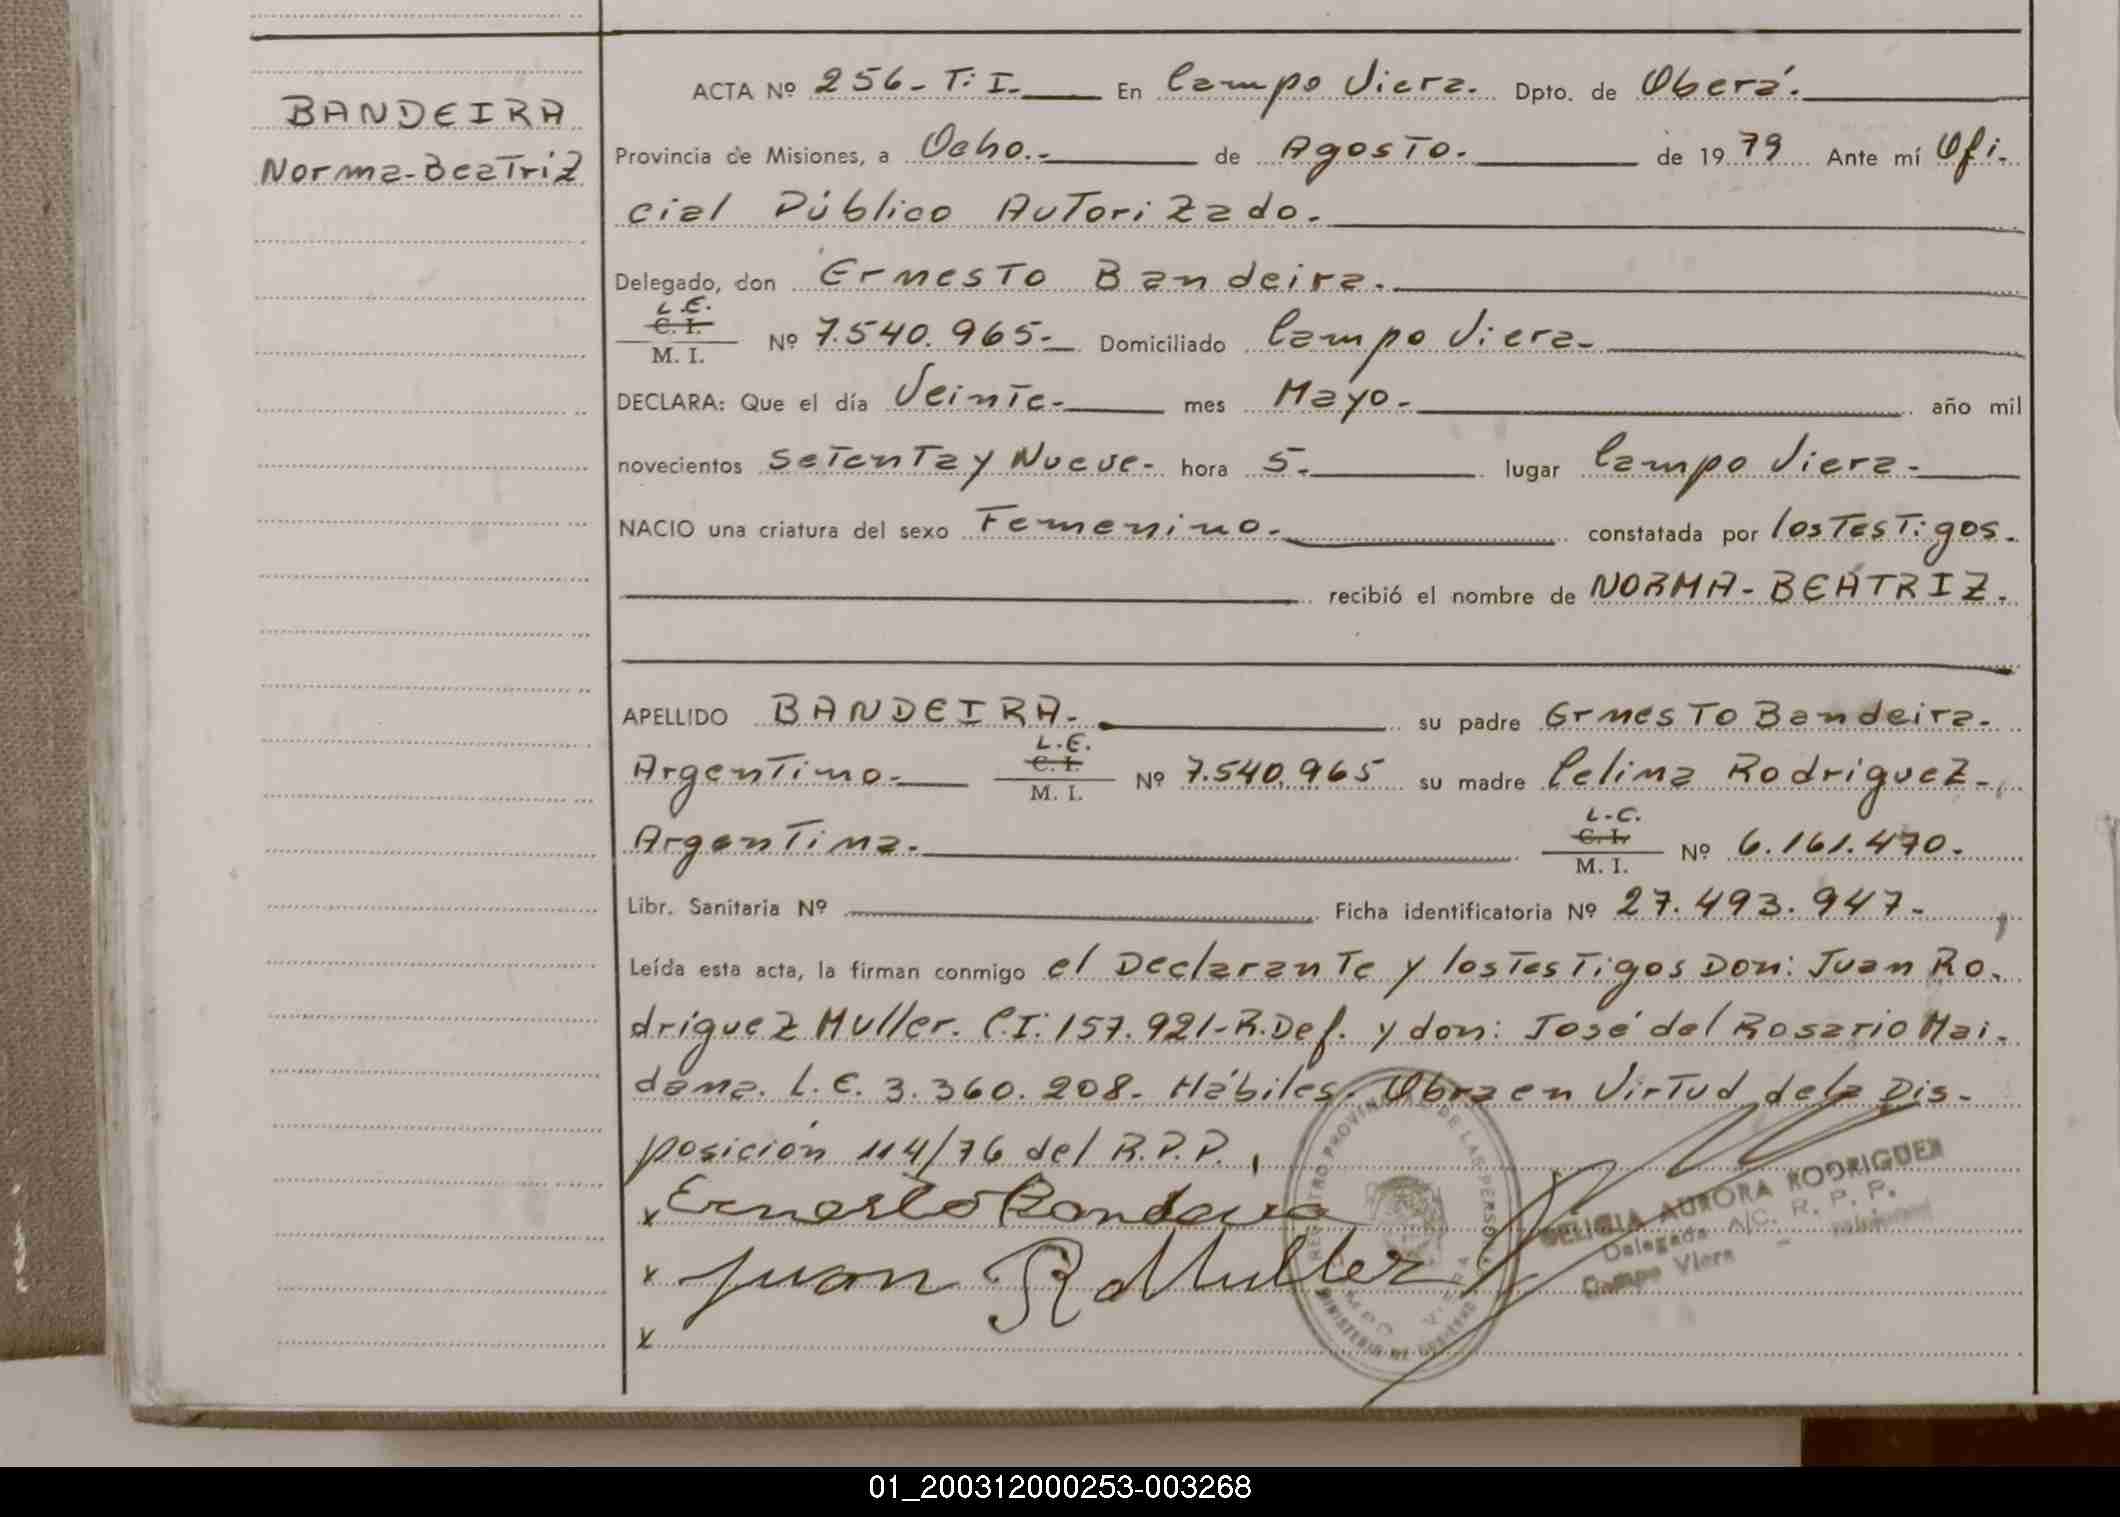 BANDEIRA
Norma-Beatriz
ACTA Nº 256-T.I. En Campo Viera. Dpto. de Oberá.
Provincia de Misiones, a Ocho. de Agosto. de 1979 Ante mí Ofi-
cial Público Autorizado.
Delegado, don Ernesto Bandeira.
L.E.
C. I.
M. I. Nº 7.540.965- Domiciliado Campo Viera-
DECLARA: Que el día Veinte- mes Mayo- año mil
novecientos Setenta y Nueve- hora 5- lugar Campo Viera-
NACIO una criatura del sexo Femenino. constatada por los Testigos.
recibió el nombre de NORMA-BEATRIZ.
APELLIDO BANDEIRA. su padre Ernesto Bandeira.
L.E.
C. I.
Argentino. M. I. Nº 7.540.965 su madre Celina Rodriguez-
L.C.
C. I.
Argentina. M. I. Nº 6.161.470.
Libr. Sanitaria Nº Ficha identificatoria Nº 27.493.947-
Leída esta acta, la firman conmigo el Declarante y los Testigos Don: Juan Ro-
driguez Muller. C.I: 157.921-R.Def. y don: José del Rosario Mai-
dana. L.E. 3.360.208- Hábiles. Obra en Virtud de la Dis-
posición 114/76 del R.P.P.
x Ernesto Bandeira
x Juan R Muller
x
REGISTRO PROVINCIAL DE LAS PERSONAS
MINISTERIO DE GOBIERNO
CAMPO VIERA
DELICIA AURORA RODRIGUEZ
Delegada A/C. R. P. P.
Campo Viera -
01_200312000253-003268